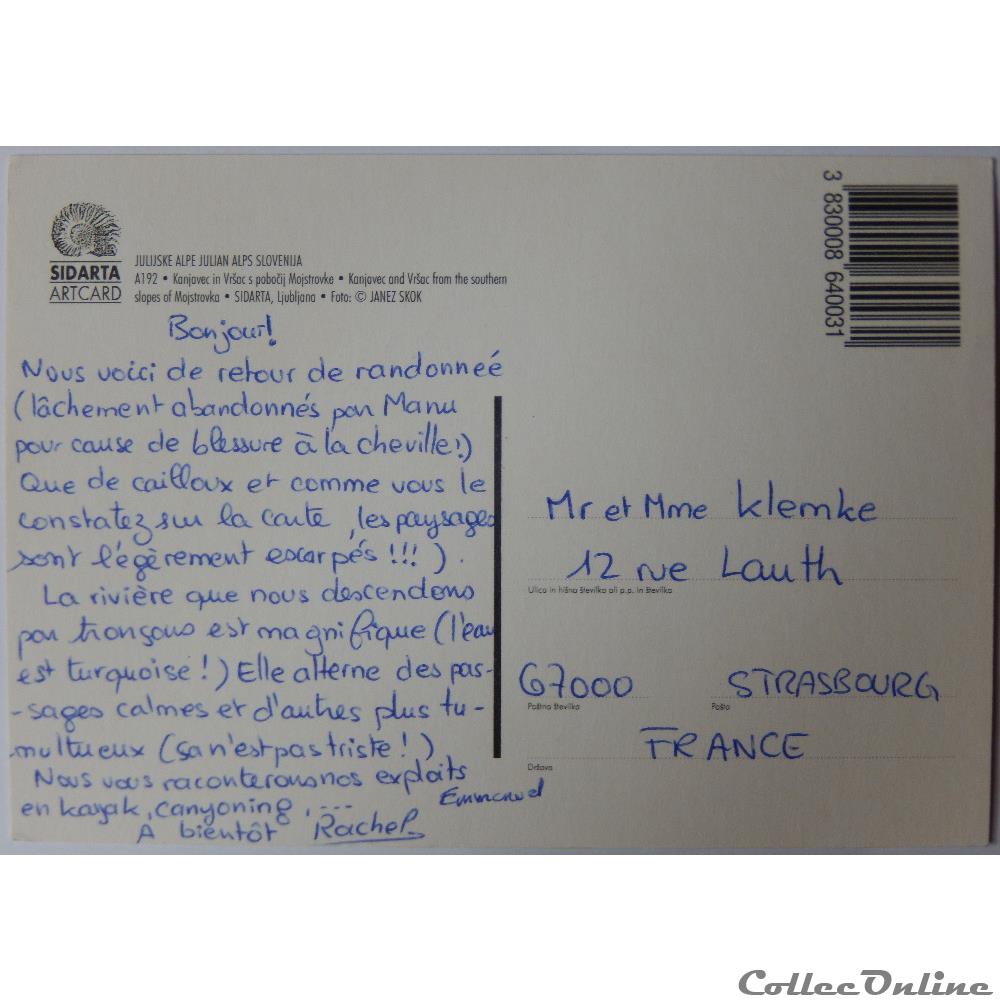 SIDARTA
ARTCARD
JULIJSKE ALPE JULIAN ALPS SLOVENIJA
A192 • Kanjavec in Vršac s pobočij Mojstrovke • Kanjavec and Vršac from the southern
slopes of Mojstrovka • SIDARTA, Ljubljana • Foto: © JANEZ SKOK
3 830008 640031
Bonjour!
Nous voici de retour de randonneé
(lâchement abandonnés par Manu
pour cause de blessure à la cheville!)
Que de cailloux et comme vous le
constatez sur la carte, les paysages
sont légèrement escarpés!!!).
La rivière que nous descendons
par tronçons est magnifique (l'eau
est turquoise!) Elle alterne des pas-
-sages calmes et d'autres plus tu-
multueux (ça n'est pas triste!)
Nous vous raconterons nos exploits
en kayak, canyoning, ...
Emmanuel
A bientôt Rachel
Mr et Mme Klemke
12 rue Lauth
Ulica in hišna številka ali p.p. in številka
67000 STRASBOURG
Poštna številka Pošta
FRANCE
Država
CollecOnline